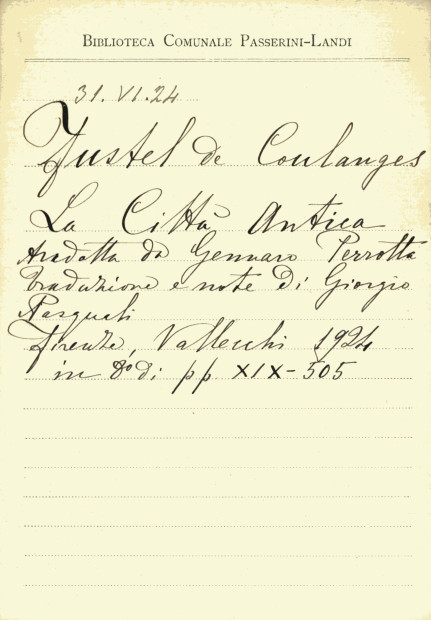 BIBLIOTECA COMUNALE PASSERINI-LANDI
31. VI. 24
Fustel de Coulanges
La Città Antica
tradotta da Gennaro Perrotta
traduzione e note di Giorgio
Pasquali
Firenze, Vallecchi 1924
in 8º di pp XIX-505